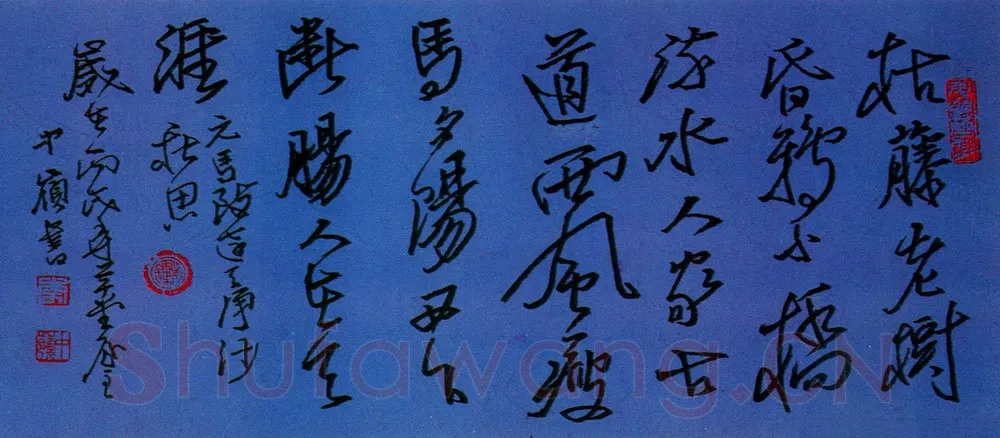 枯藤老樹
昏鴉小橋
流水人家古
道西風瘦
馬夕陽西下
斷腸人在天
涯
元馬致遠天净沙
秋思
歲在丙戌
書
Shufawang.CN